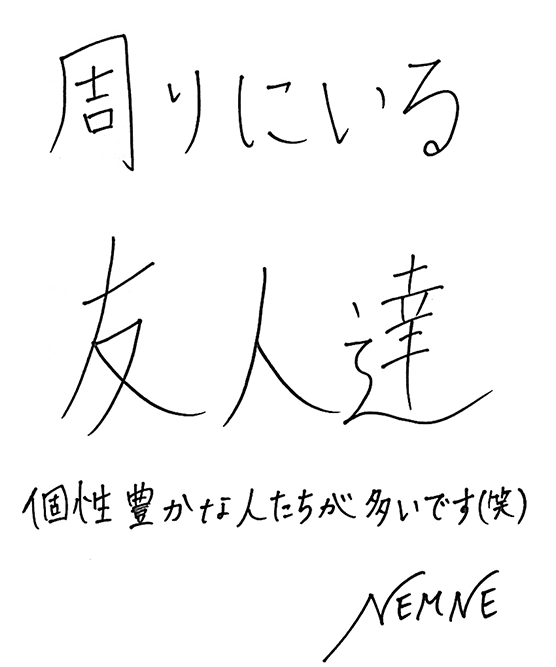 周りにいる
友人達
個性豊かな人たちが多いです(笑)
NEMNE